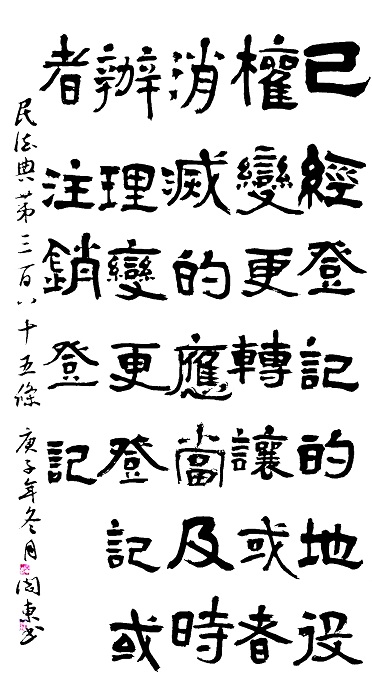 已經登記的地役
權變更轉讓或者
消滅的應當及時
辦理變更登記或
者注銷登記
民法典第三百八十五條 庚子年冬月 東書